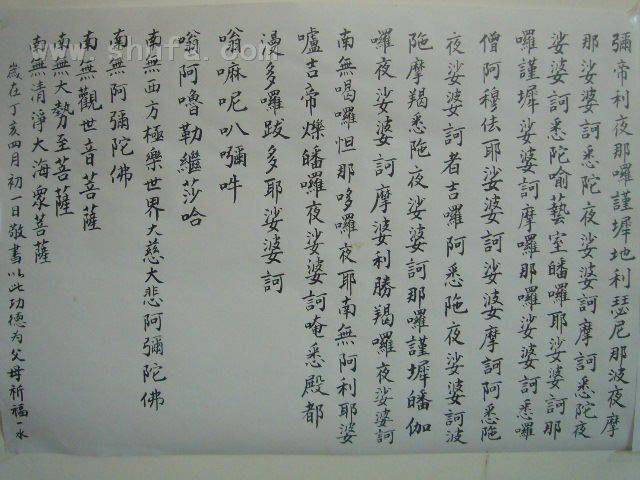 彌帝利夜那囉謹墀地利瑟尼那波夜摩
那娑婆訶悉陀夜娑婆訶摩訶悉陀夜
娑婆訶悉陀喻藝室皤囉耶娑婆訶那
囉謹墀娑婆訶摩囉那囉娑婆訶悉囉
僧阿穆佉耶娑婆訶娑婆摩訶阿悉陁
夜娑婆訶者吉囉阿悉陁夜娑婆訶波
陁摩羯悉陁夜娑婆訶那囉謹墀皤伽
囉夜娑婆訶摩婆利勝羯囉夜娑婆訶
南無喝囉怛那哆囉夜耶南無阿利耶婆
嚧吉帝爍皤囉夜娑婆訶唵悉殿都
漫多囉跋多耶娑婆訶
嗡嘛呢叭吽
嗡阿嚕勒繼莎哈
南無西方極樂世界大慈大悲阿彌陀佛
南無阿彌陀佛
南無觀世音菩薩
南無大勢至菩薩
南無清淨大海眾菩薩
歲在丁亥四月初一日敬書以此功德为父母祈福一水
www.shufa.com